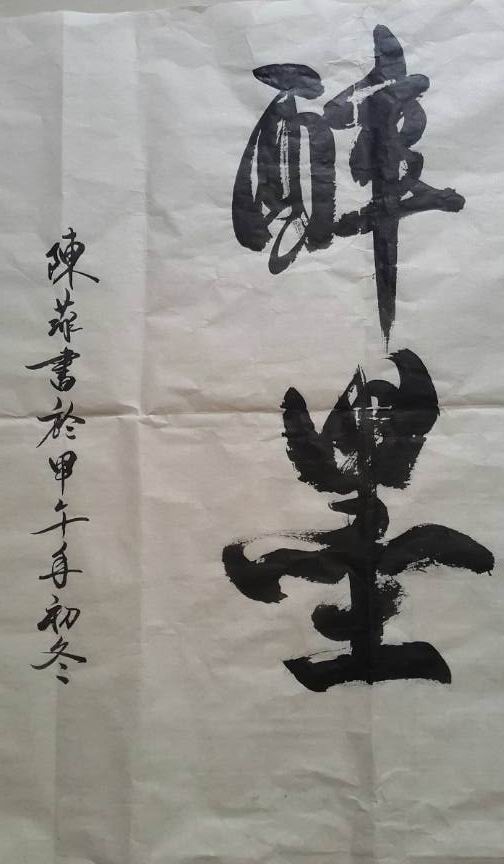 醉墨
陳菲書於甲午年初冬